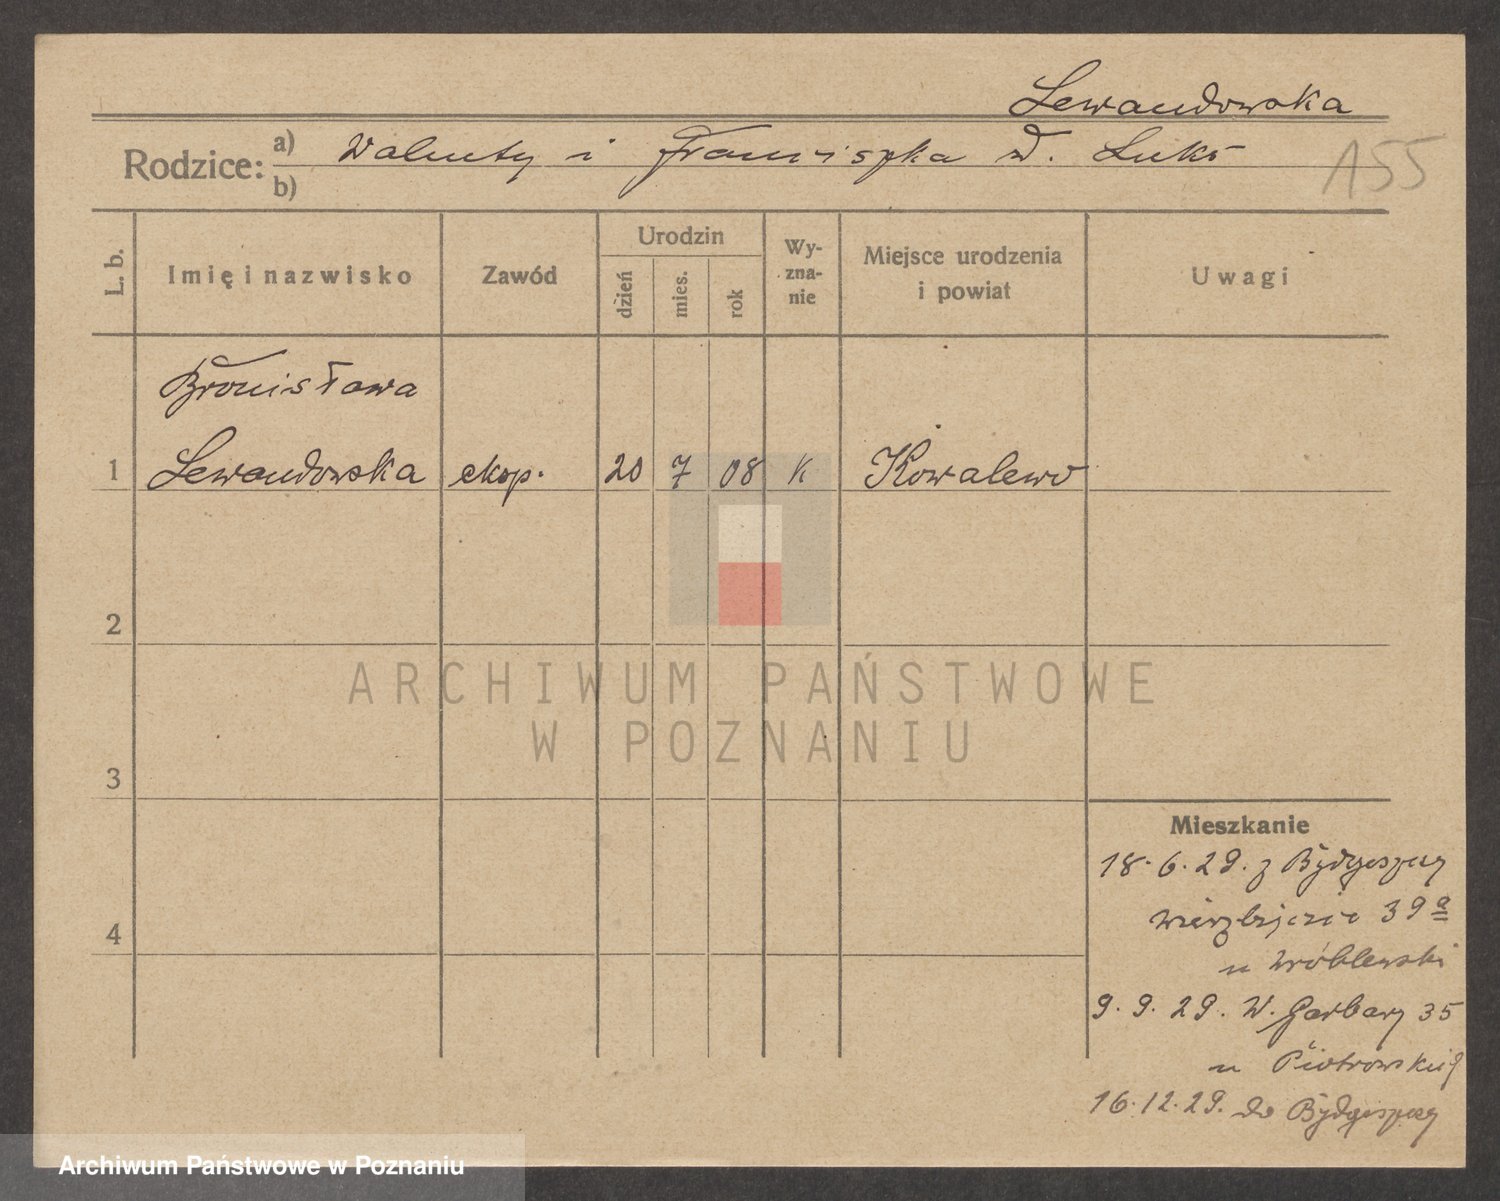 Lewandowska
Rodzice: a) Walenty i Franciszka d. Luks
b)
155
L. b.
Imię i nazwisko
Zawód
Urodzin
dzień
mies.
rok
Wy-
zna-
nie
Miejsce urodzenia
i powiat
Uwagi
Bronisława
1 Lewandowska eksp. 20 7 08 K Kowalewo
2
3
4
ARCHIWUM PAŃSTWOWE
W POZNANIU
Mieszkanie
18.6.29. z Bydgoszczy
Wierzbięcice 39a
u Wróblewski
9.9.29. W. Garbary 35
u Piotrowskiej
16.12.29. do Bydgoszczy
Archiwum Państwowe w Poznaniu